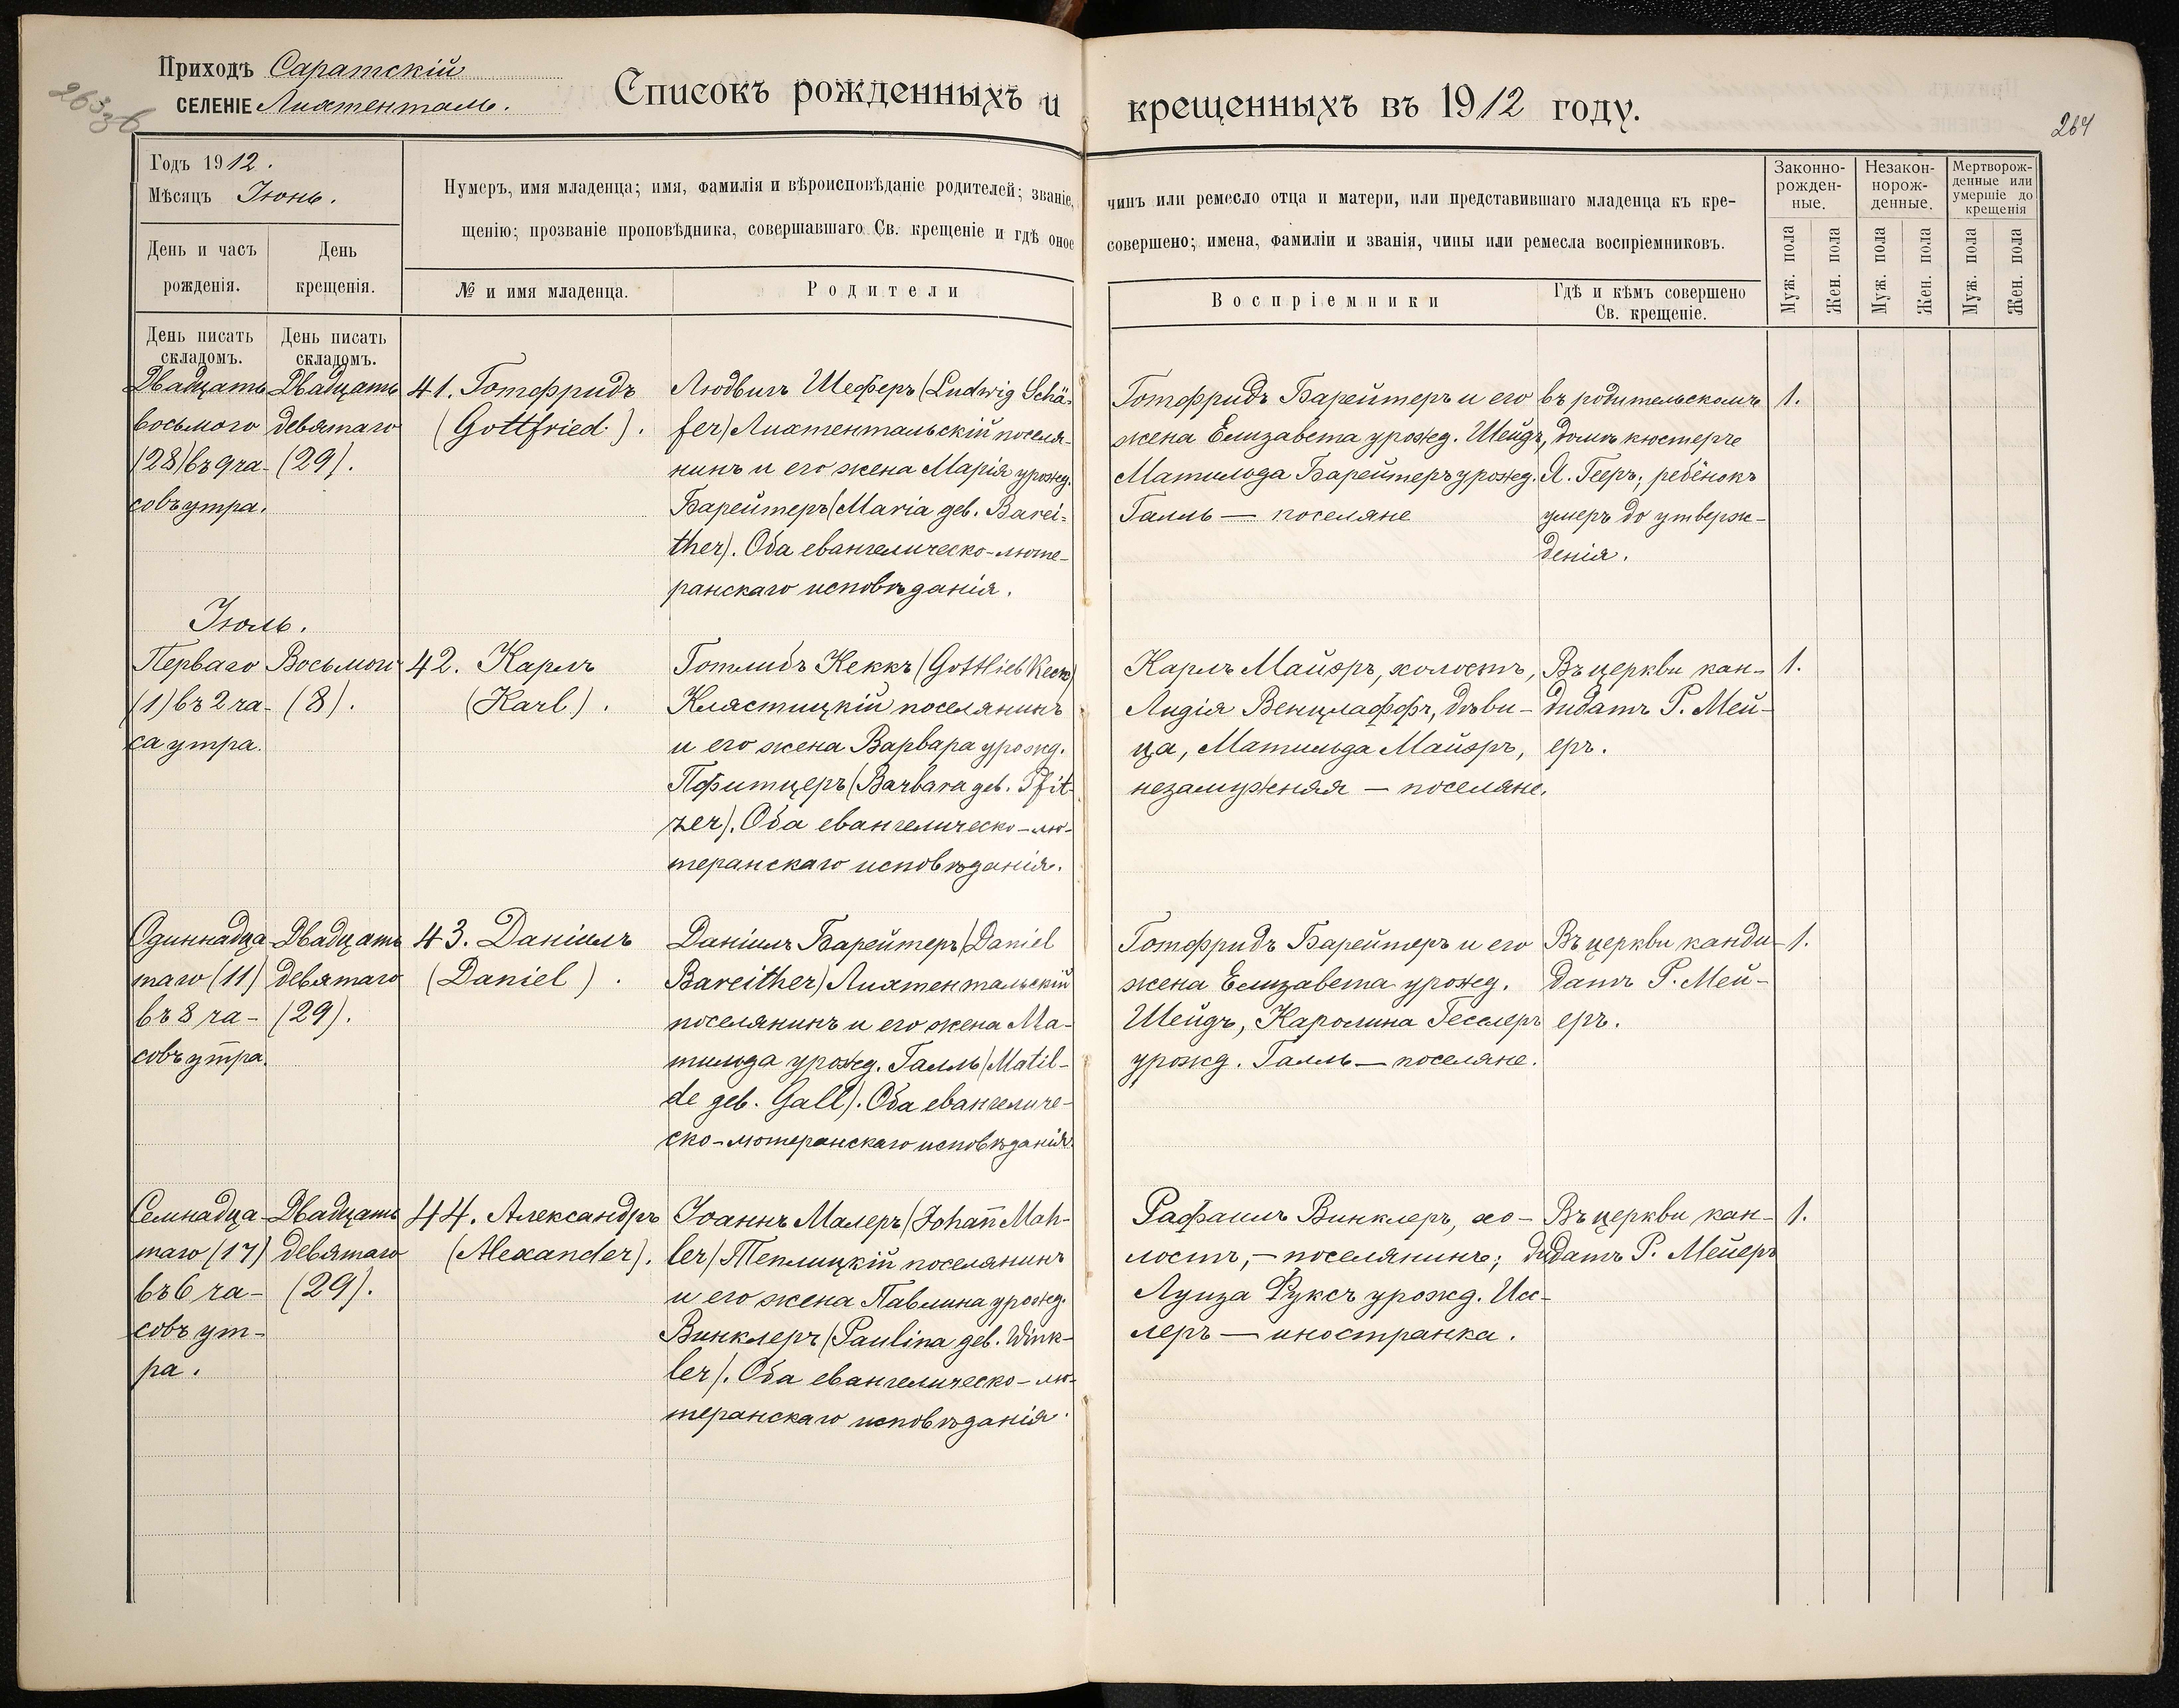 Приходъ Саратскій
СЕЛЕНІЕ Лихтенталь.
Списокъ рожденныхъ и крещенныхъ въ 1912 году.
264
Годъ 1912.
Мѣсяцъ Іюнь.
День и часъ рожденія.
День крещенія.
Нумеръ, имя младенца; имя, фамилія и вѣроисповѣданіе родителей; званіе, чинъ или ремесло отца и матери, или представившаго младенца къ кре-
щенію; прозваніе проповѣдника, совершавшаго Св. крещеніе и гдѣ оное совершено; имена, фамиліи и званія, чины или ремесла воспріемниковъ.
№ и имя младенца.
Родители
Воспріемники
Гдѣ и кѣмъ совершено
Св. крещеніе.
Законно-
рожден-
ные.
Незакон-
норож-
денные.
Мертворож-
денные или
умершіе до
крещенія
Муж. пола
Жен. пола
Муж. пола
Жен. пола
Муж. пола
Жен. пола
День писать
складомъ.
День писать
складомъ.
Двадцать
восьмого
(28) въ 9 ча-
совъ утра.
Двадцать
девятаго
(29).
41. Готфридъ
(Gottfried).
Людвигъ Шеферъ (Ludwig Schä-
fer) Лихтентальскій поселя-
нинъ и его жена Марія урожд.
Барейтеръ (Maria geb. Barei-
ther). Оба евангелическо-люте-
ранскаго исповѣданія.
Готфридъ Барейтеръ и его
жена Елизавета урожд. Шейдъ,
Матильда Барейтеръ урожд.
Галль — поселяне
въ родительскомъ
домѣ кюстеръ
Я. Гееръ; ребёнокъ
умеръ до утверж-
денія.
1.
Іюль.
Перваго
(1) въ 2 ча-
са утра.
Восьмого
(8).
42. Карлъ
(Karl).
Готлибъ Кеккъ (Gottlieb Keck)
Клястицкій поселянинъ
и его жена Варвара урожд.
Пфитцеръ (Barbara geb. Pfit-
zer). Оба евангелическо-лю-
теранскаго исповѣданія.
Карлъ Майэръ, холостъ,
Лидія Венцлаффъ, дѣви-
ца, Матильда Майэръ,
незамужняя — поселяне.
Въ церкви кан-
дидатъ Р. Мей-
еръ.
1.
Одиннадца-
таго (11)
въ 8 ча-
совъ утра.
Двадцать
девятаго
(29).
43. Даніилъ
(Daniel).
Даніилъ Барейтеръ (Daniel
Bareither) Лихтентальскій
поселянинъ и его жена Ма-
тильда урожд. Галль (Matil-
de geb. Gall). Оба евангеличе-
ско-лютеранскаго исповѣданія.
Готфридъ Барейтеръ и его
жена Елизавета урожд.
Шейдъ, Каролина Гесслеръ
урожд. Галль — поселяне.
Въ церкви канди-
датъ Р. Мей-
еръ.
1.
Семнадца-
таго (17)
въ 6 ча-
совъ ут-
ра.
Двадцать
девятаго
(29).
44. Александръ
(Alexander).
Іоаннъ Малеръ (Johan̄ Mah-
ler) Теплицкій поселянинъ
и его жена Павлина урожд.
Винклеръ (Paulina geb. Wink-
ler). Оба евангелическо-лю-
теранскаго исповѣданія.
Рафаилъ Винклеръ, хо-
лостъ, — поселянинъ;
Луиза Фуксъ урожд. Ис-
леръ — иностранка.
Въ церкви кан-
дидатъ Р. Мейеръ
1.